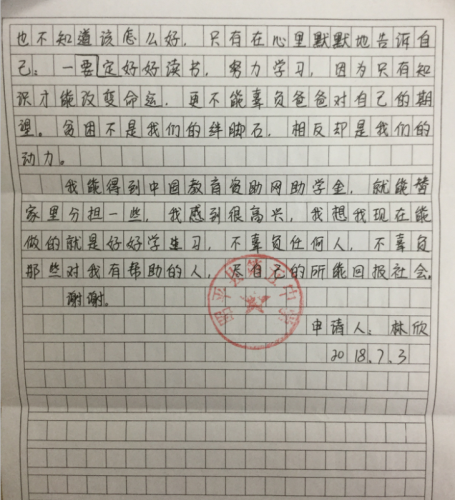 也不知道该怎么好，只有在心里默默地告诉自
己：一要定好好读书，努力学习，因为只有知
识才能改变命运，更不能辜负爸爸对自己的期
望。贫困不是我们的绊脚石，相反却是我们的
动力。
我能得到中国教育资助网助学金，就能替
家里分担一些，我感到很高兴，我想我现在能
做的就是好好学生习，不辜负任何人，不辜负
那些对我有帮助的人，尽自己的所能回报社会。
谢谢。
申请人：林欣
2018.7.3